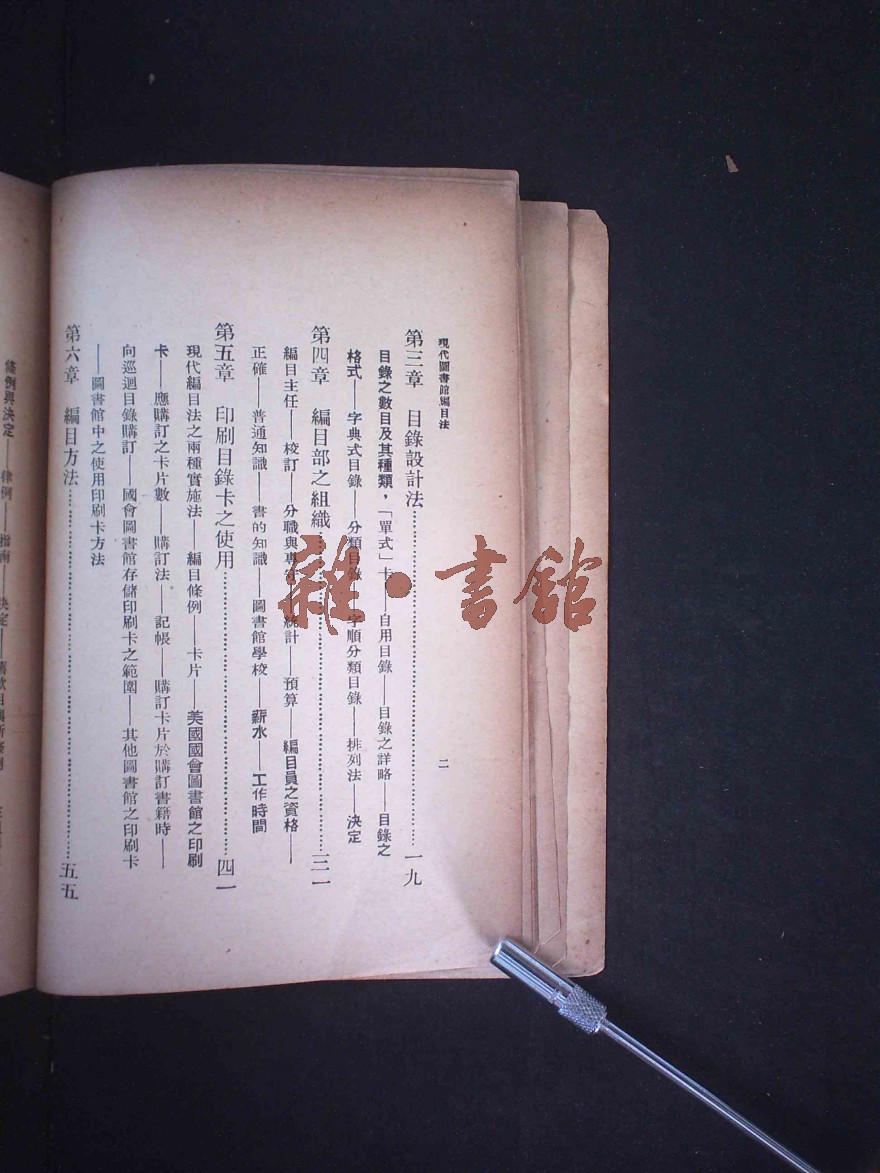 現代圖書館編目法
二
第三章　目錄設計法……一九
目錄之數目及其種類，「單式」卡——自用目錄——目錄之詳略——目錄之
格式——字典式目錄——分類目錄——字順分類目錄——排列法——決定
第四章　編目部之組織……三一
編目主任——校訂——分職與專——統計——預算——編目員之資格——
正確——普通知識——書的知識——圖書館學校——薪水——工作時間
第五章　印刷目錄卡之使用……四一
現代編目法之兩種實施法——編目條例——卡片——美國國會圖書館之印刷
卡——應購訂之卡片數——購訂法——記帳——購訂卡片於購訂書籍時——
向巡迴目錄購訂——國會圖書館存儲印刷卡之範圍——其他圖書館之印刷卡
——圖書館中之使用印刷卡方法
第六章　編目方法……五五
條例與決定——律例——指南——決定——
雜·書館